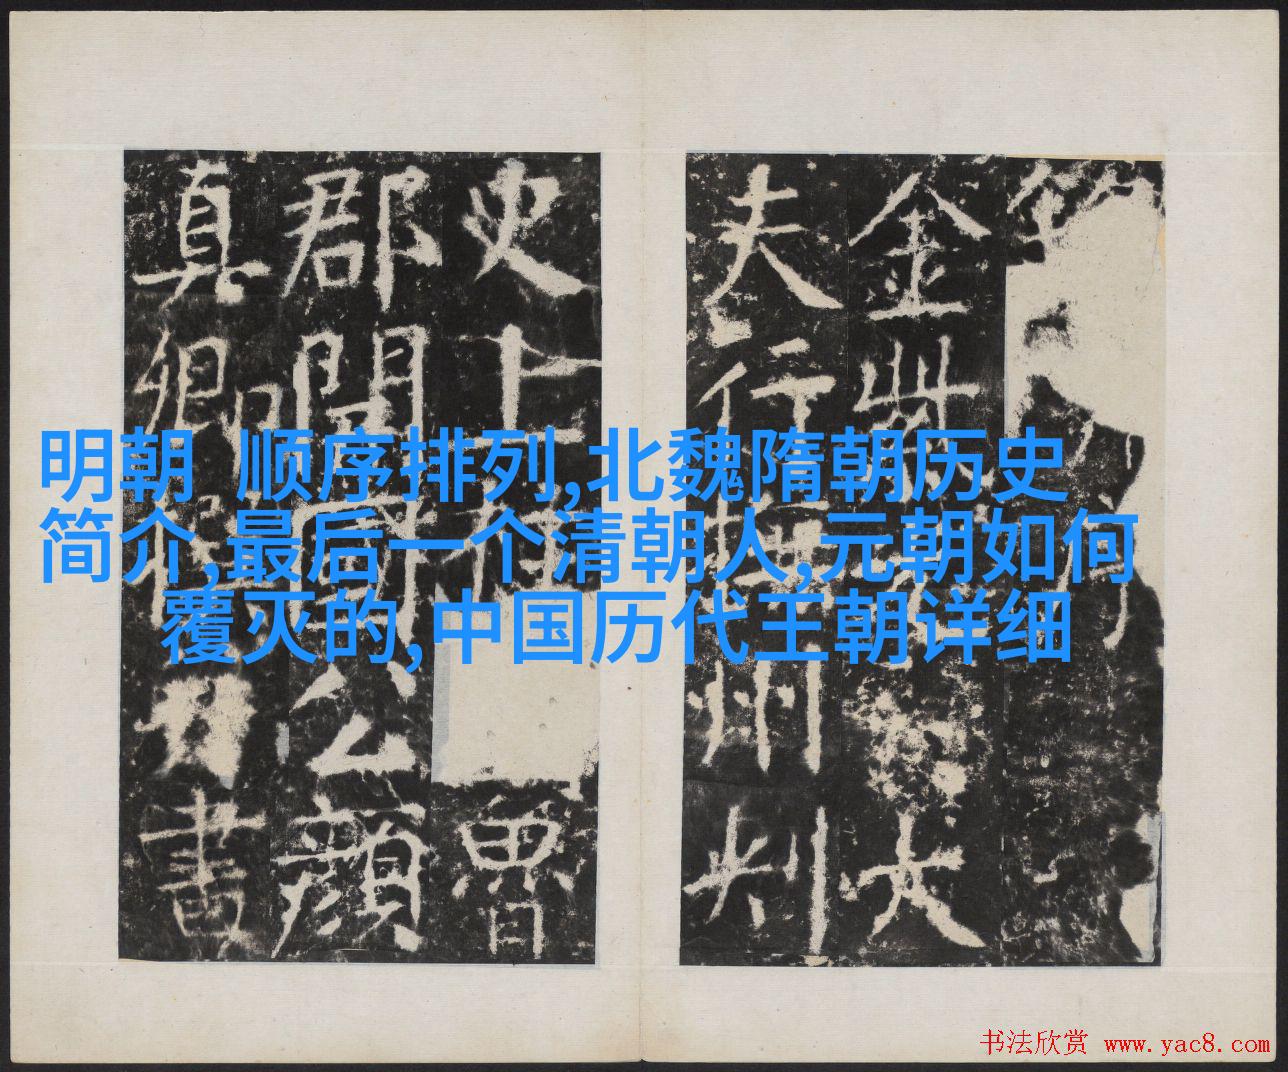 明朝 顺序排列,北魏隋朝历史
简介,最后一个清朝人,元朝如何
覆灭的,中国历代王朝详细
金紫大
夫行撫州刺
史上柱魯
郡開國公顏
真卿撰書
书法欣赏 www.yac8.com